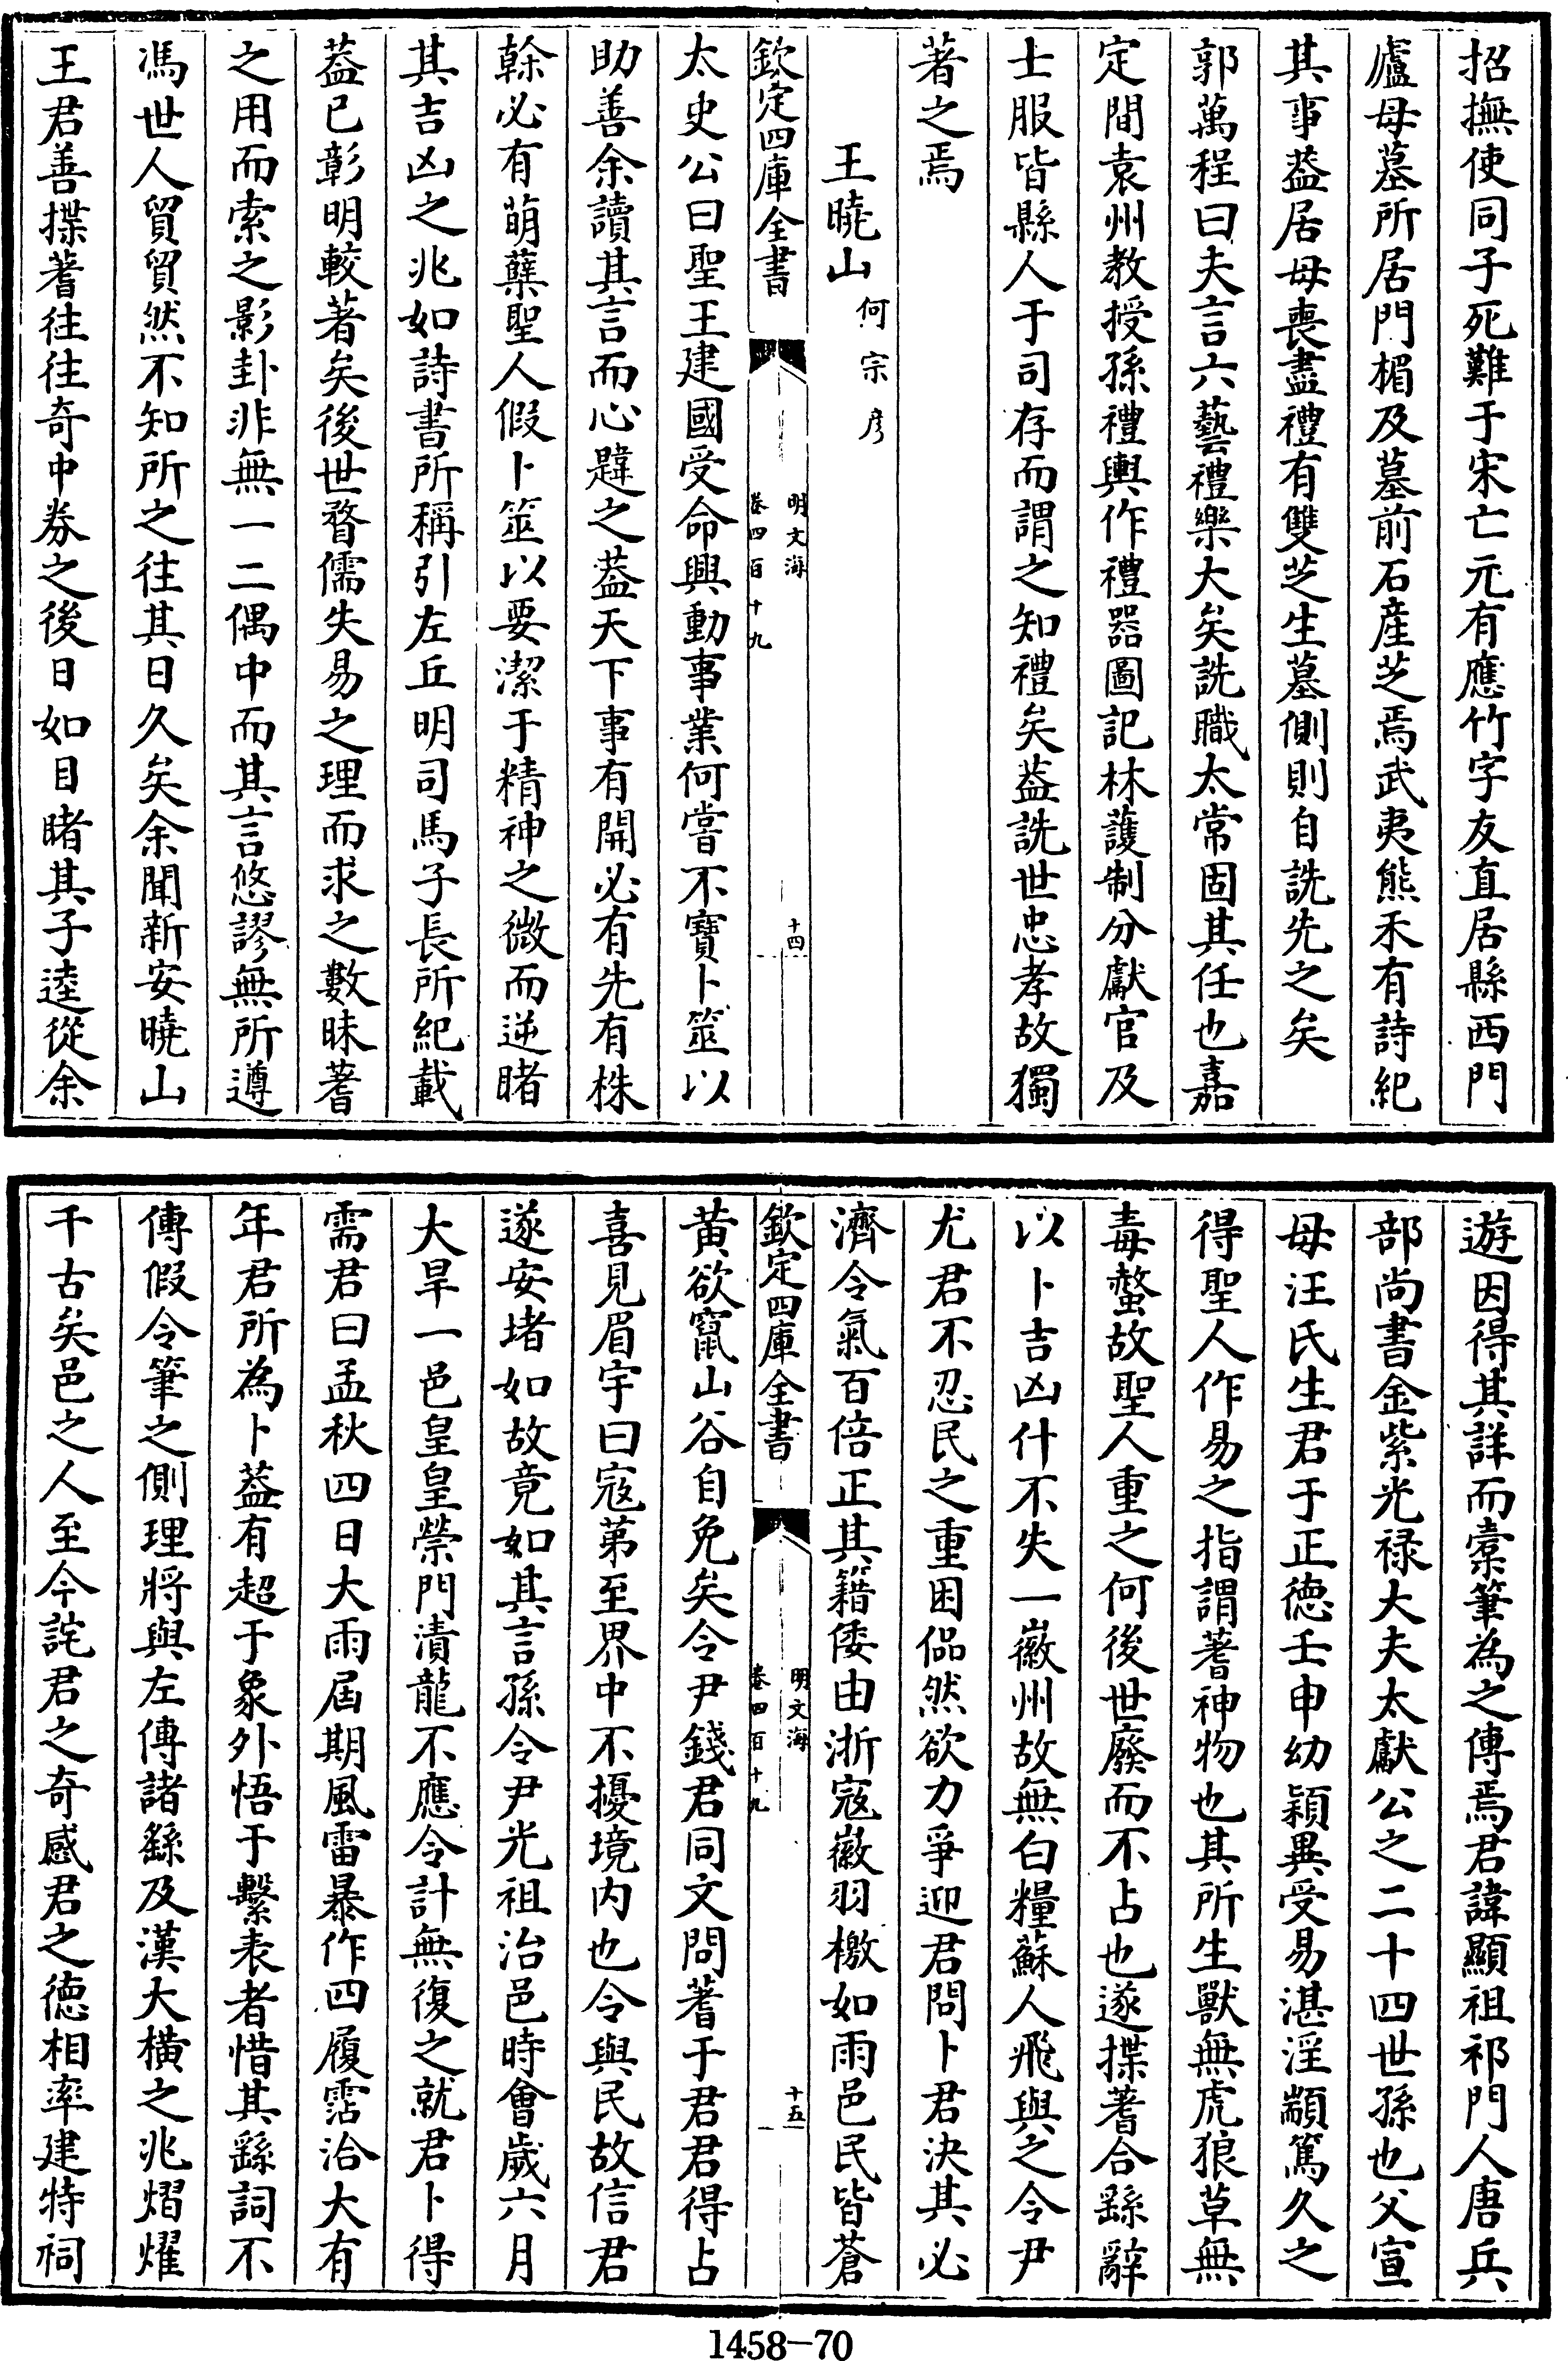 招撫使同子死難于宋亡元有應竹字友直居縣西門
廬母墓所居門楣及墓前石産芝焉武夷熊禾有詩紀
其事葢居母喪盡禮有雙芝生墓側則自詵先之矣
郭萬程曰夫言六藝禮樂大矣詵職太常固其任也嘉
定間袁州教授孫禮輿作禮器圖記林䕶制分獻官及
士服皆縣人于司存而謂之知禮矣葢詵世忠孝故獨
著之焉
王曉山何宗彦
欽定四庫全書
明文海
卷四百十九
十四
太史公曰聖王建國受命興動事業何嘗不寶卜筮以
助善余讀其言而心韙之葢天下事有開必有先有株
榦必有萌蘖聖人假卜筮以要潔于精神之微而逆睹
其吉凶之兆如詩書所稱引左丘明司馬子長所紀載
葢已彰明較著矣後世瞀儒失易之理而求之數昧蓍
之用而索之影卦非無一二偶中而其言悠謬無所遵
馮世人貿貿然不知所之往其日久矣余聞新安曉山
王君善揲蓍往往奇中劵之後日如目睹其子逵從余
遊因得其詳而槖筆為之傳焉君諱顯祖祁門人唐兵
部尚書金紫光禄大夫太獻公之二十四世孫也父宣
母汪氏生君于正德壬申幼穎異受易湛淫顓篤久之
得聖人作易之指謂蓍神物也其所生獸無虎狼草無
毒螫故聖人重之何後世廢而不占也遂揲蓍合繇辭
以卜吉凶什不失一徽州故無白糧蘇人飛與之令尹
尤君不忍民之重困偘然欲力爭迎君問卜君決其必
濟令氣百倍正其籍倭由浙寇徽羽檄如雨邑民皆蒼
欽定四庫全書
明文海
卷四百十九
十五
黄欲竄山谷自免矣令尹錢君同文問蓍于君君得占
喜見眉宇曰寇第至界中不擾境内也令與民故信君
遂安堵如故竟如其言孫令尹光祖治邑時會歲六月
大旱一邑皇皇禜門漬龍不應令計無復之就君卜得
需君曰孟秋四日大雨屆期風雷暴作四履霑洽大有
年君所為卜葢有超于象外悟于繫表者惜其繇詞不
傳假令筆之側理將與左傳諸繇及漢大橫之兆熠燿
千古矣邑之人至今詫君之奇感君之德相率建特祠
1458-70